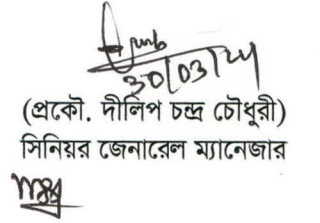 30/03/২৫
(প্রকৌ. দীলিপ চন্দ্র চৌধুরী)
সিনিয়র জেনারেল ম্যানেজার